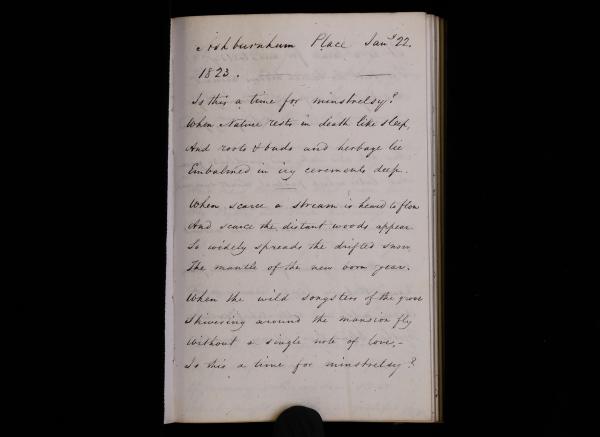 Ashburnham Place Jan.y 22.
1823.
Is this a time for minstrelsy?
When Nature rests in death like sleep,
And roots & buds and herbage lie
Embalmed in icy cerements deep.
When scarce a stream is heard to flow
And scarce the distant woods appear
So widely spreads the drifted snow
The mantle of the new born year.
When the wild songsters of the grove
Shivering around the mansion fly
Without a single note of love,-
Is this a time for minstrelsy?